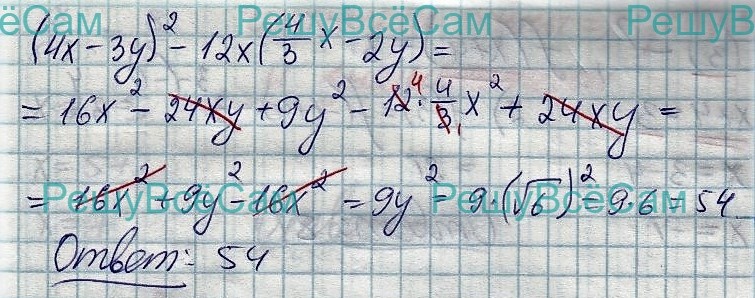 ёСам РешуВсёСам РешуВ
(4x - 3y)² - 12x(4/3 x - 2y) =
= 16x² - 24xy + 9y² - 12⁴ · 4/3₁ x² + 24xy =
= 16x² + 9y² - 16x² = 9y² = 9·(√6)² = 9·6 = 54
РешуВсёСам РешуВсёСам
Ответ: 54